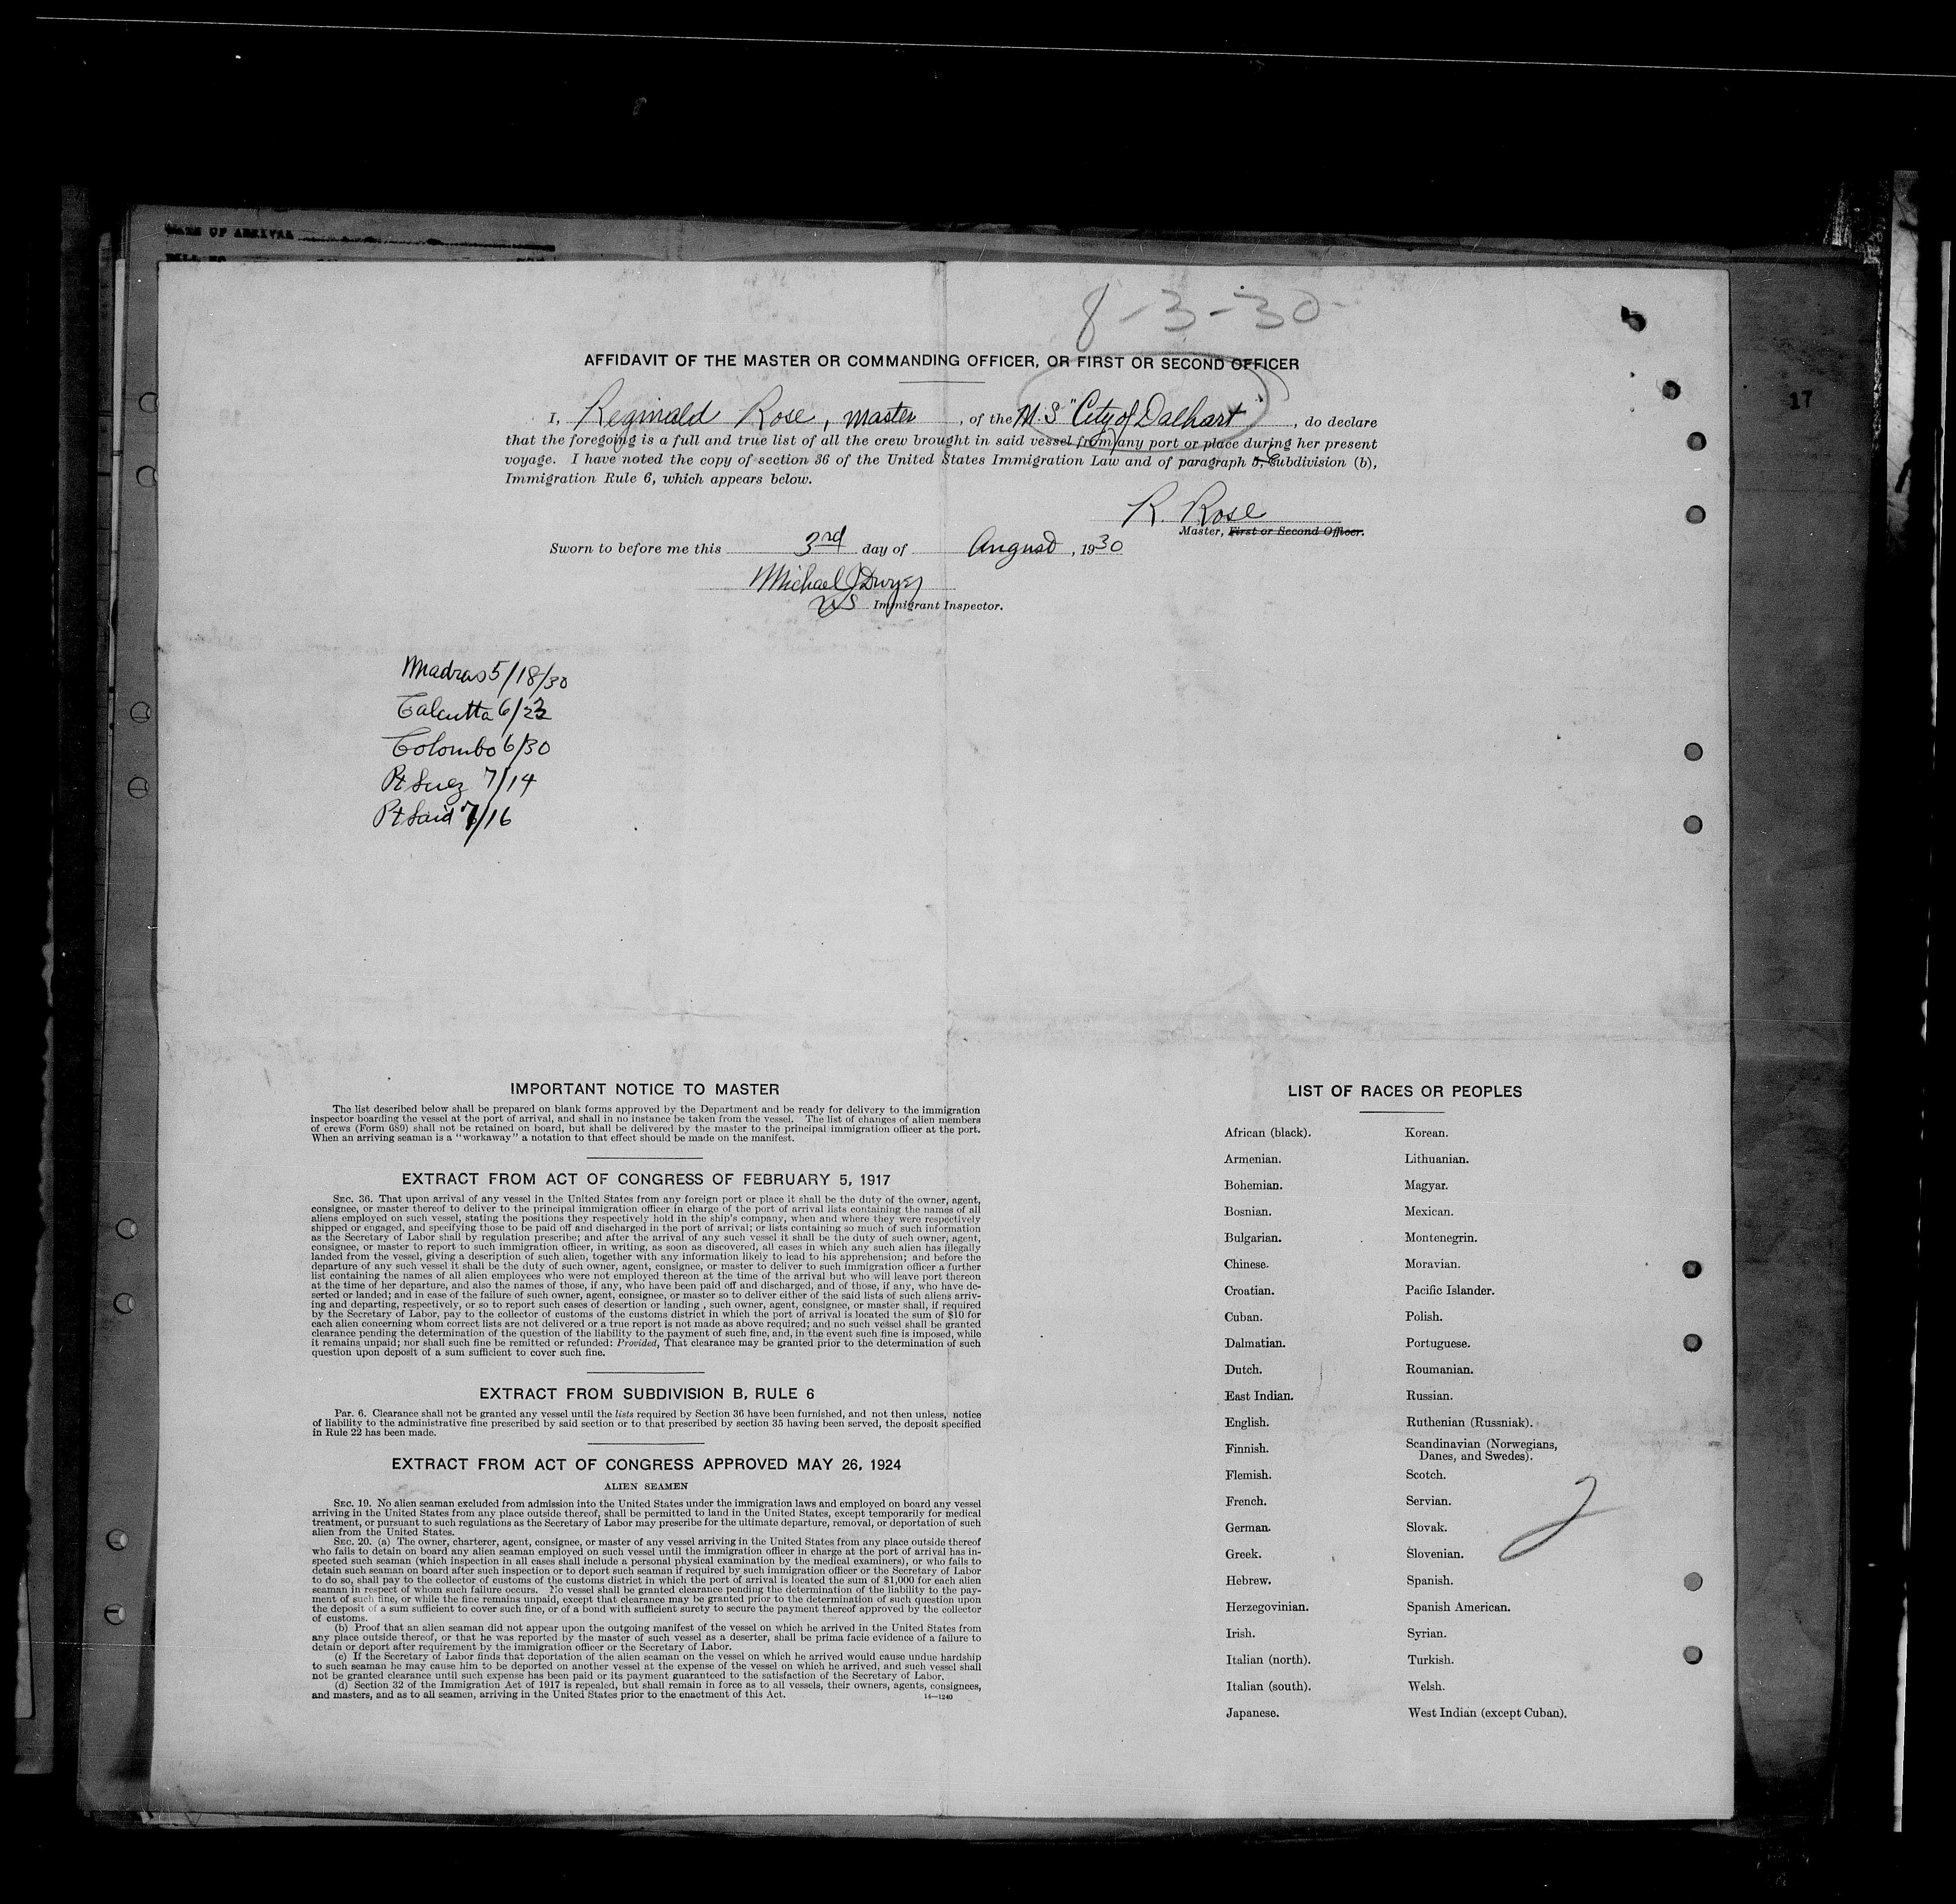 DATE OF ARRIVAL
8-3-30-
17
AFFIDAVIT OF THE MASTER OR COMMANDING OFFICER, OR FIRST OR SECOND OFFICER
I, Reginald Rose, master, of the M.S "City of Dalhart", do declare
that the foregoing is a full and true list of all the crew brought in said vessel from any port or place during her present
voyage. I have noted the copy of section 36 of the United States Immigration Law and of paragraph 6, subdivision (b),
Immigration Rule 6, which appears below.
R. Rose
Master, First or Second Officer.
Sworn to before me this 3rd day of August, 1930
Michael J Dwyer
US Immigrant Inspector.
Madras 5/18/30
Calcutta 6/22
Colombo 6/30
Pt Suez 7/14
Pt Said 7/16
IMPORTANT NOTICE TO MASTER
The list described below shall be prepared on blank forms approved by the Department and be ready for delivery to the immigration
inspector boarding the vessel at the port of arrival, and shall in no instance be taken from the vessel. The list of changes of alien members
of crews (Form 689) shall not be retained on board, but shall be delivered by the master to the principal immigration officer at the port.
When an arriving seaman is a "workaway" a notation to that effect should be made on the manifest.
EXTRACT FROM ACT OF CONGRESS OF FEBRUARY 5, 1917
SEC. 36. That upon arrival of any vessel in the United States from any foreign port or place it shall be the duty of the owner, agent,
consignee, or master thereof to deliver to the principal immigration officer in charge of the port of arrival lists containing the names of all
aliens employed on such vessel, stating the positions they respectively hold in the ship's company, when and where they were respectively
shipped or engaged, and specifying those to be paid off and discharged in the port of arrival; or lists containing so much of such information
as the Secretary of Labor shall by regulation prescribe; and after the arrival of any such vessel it shall be the duty of such owner, agent,
consignee, or master to report to such immigration officer, in writing, as soon as discovered, all cases in which any such alien has illegally
landed from the vessel, giving a description of such alien, together with any information likely to lead to his apprehension; and before the
departure of any such vessel it shall be the duty of such owner, agent, consignee, or master to deliver to such immigration officer a further
list containing the names of all alien employees who were not employed thereon at the time of the arrival but who will leave port thereon
at the time of her departure, and also the names of those, if any, who have been paid off and discharged, and of those, if any, who have de-
serted or landed; and in case of the failure of such owner, agent, consignee, or master so to deliver either of the said lists of such aliens arriv-
ing and departing, respectively, or so to report such cases of desertion or landing , such owner, agent, consignee, or master shall, if required
by the Secretary of Labor, pay to the collector of customs of the customs district in which the port of arrival is located the sum of $10 for
each alien concerning whom correct lists are not delivered or a true report is not made as above required; and no such vessel shall be granted
clearance pending the determination of the question of the liability to the payment of such fine, and, in the event such fine is imposed, while
it remains unpaid; nor shall such fine be remitted or refunded: Provided, That clearance may be granted prior to the determination of such
question upon deposit of a sum sufficient to cover such fine.
EXTRACT FROM SUBDIVISION B, RULE 6
Par. 6. Clearance shall not be granted any vessel until the lists required by Section 36 have been furnished, and not then unless, notice
of liability to the administrative fine prescribed by said section or to that prescribed by section 35 having been served, the deposit specified
in Rule 22 has been made.
EXTRACT FROM ACT OF CONGRESS APPROVED MAY 26, 1924
ALIEN SEAMEN
SEC. 19. No alien seaman excluded from admission into the United States under the immigration laws and employed on board any vessel
arriving in the United States from any place outside thereof, shall be permitted to land in the United States, except temporarily for medical
treatment, or pursuant to such regulations as the Secretary of Labor may prescribe for the ultimate departure, removal, or deportation of such
alien from the United States.
SEC. 20. (a) The owner, charterer, agent, consignee, or master of any vessel arriving in the United States from any place outside thereof
who fails to detain on board any alien seaman employed on such vessel until the immigration officer in charge at the port of arrival has in-
spected such seaman (which inspection in all cases shall include a personal physical examination by the medical examiners), or who fails to
detain such seaman on board after such inspection or to deport such seaman if required by such immigration officer or the Secretary of Labor
to do so, shall pay to the collector of customs of the customs district in which the port of arrival is located the sum of $1,000 for each alien
seaman in respect of whom such failure occurs. No vessel shall be granted clearance pending the determination of the liability to the pay-
ment of such fine, or while the fine remains unpaid, except that clearance may be granted prior to the determination of such question upon
the deposit of a sum sufficient to cover such fine, or of a bond with sufficient surety to secure the payment thereof approved by the collector
of customs.
(b) Proof that an alien seaman did not appear upon the outgoing manifest of the vessel on which he arrived in the United States from
any place outside thereof, or that he was reported by the master of such vessel as a deserter, shall be prima facie evidence of a failure to
detain or deport after requirement by the immigration officer or the Secretary of Labor.
(c) If the Secretary of Labor finds that deportation of the alien seaman on the vessel on which he arrived would cause undue hardship
to such seaman he may cause him to be deported on another vessel at the expense of the vessel on which he arrived, and such vessel shall
not be granted clearance until such expense has been paid or its payment guaranteed to the satisfaction of the Secretary of Labor.
(d) Section 32 of the Immigration Act of 1917 is repealed, but shall remain in force as to all vessels, their owners, agents, consignees,
and masters, and as to all seamen, arriving in the United States prior to the enactment of this Act.
14—1240
LIST OF RACES OR PEOPLES
African (black).
Armenian.
Bohemian.
Bosnian.
Bulgarian.
Chinese.
Croatian.
Cuban.
Dalmatian.
Dutch.
East Indian.
English.
Finnish.
Flemish.
French.
German.
Greek.
Hebrew.
Herzegovinian.
Irish.
Italian (north).
Italian (south).
Japanese.
Korean.
Lithuanian.
Magyar.
Mexican.
Montenegrin.
Moravian.
Pacific Islander.
Polish.
Portuguese.
Roumanian.
Russian.
Ruthenian (Russniak).
Scandinavian (Norwegians,
Danes, and Swedes).
Scotch.
Servian.
Slovak.
Slovenian.
Spanish.
Spanish American.
Syrian.
Turkish.
Welsh.
West Indian (except Cuban).
2